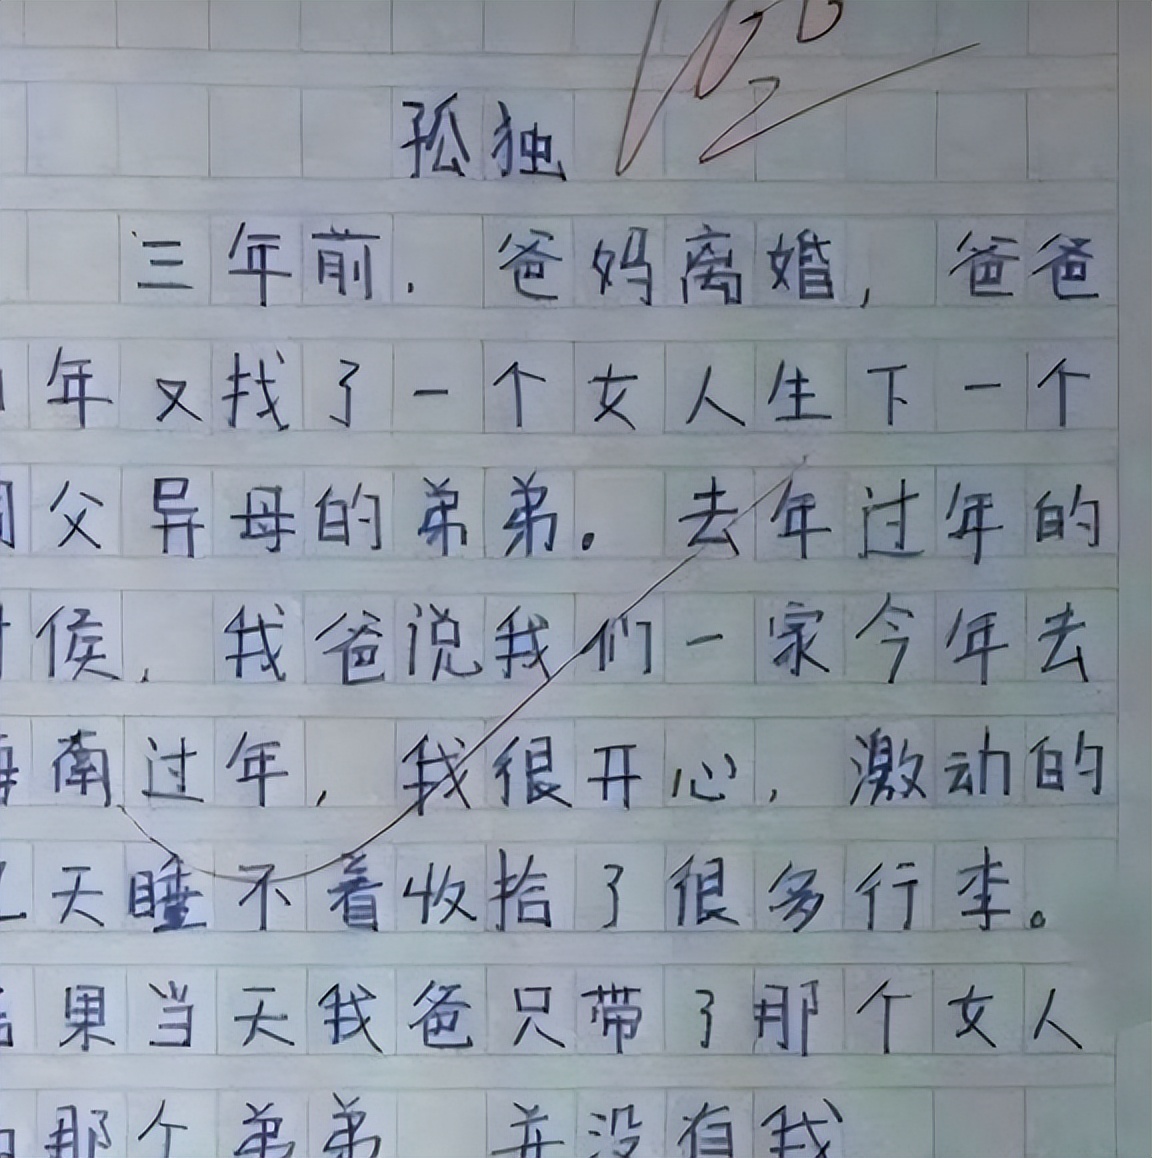 100
孤独
三年前，爸妈离婚，爸爸
年又找了一个女人生下一个
父异母的弟弟。去年过年的
候，我爸说我们一家今年去
南过年，我很开心，激动的
天睡不着收拾了很多行李。
果当天我爸只带了那个女人
那个弟弟 并没有我